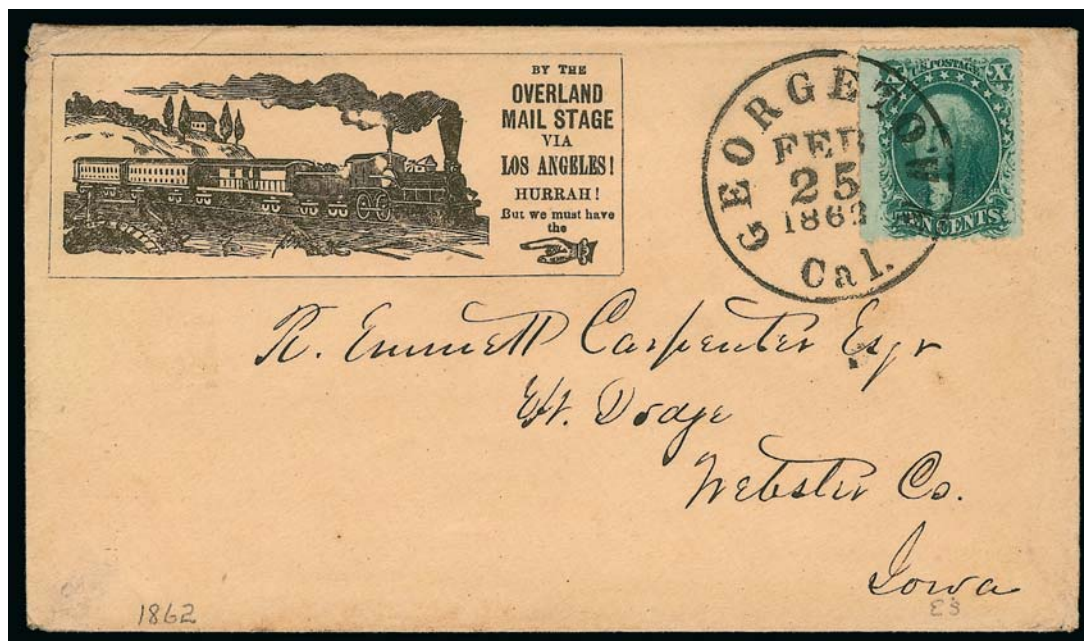 BY THE
OVERLAND
MAIL STAGE
VIA
LOS ANGELES!
HURRAH!
But we must have
the
GEORGETOWN
FEB
25
1862
Cal.
U.S. POSTAGE X
TEN CENTS
R. Emmett Carpenter Esqr
Ft. Dodge
Webster Co.
Iowa
1862
ES